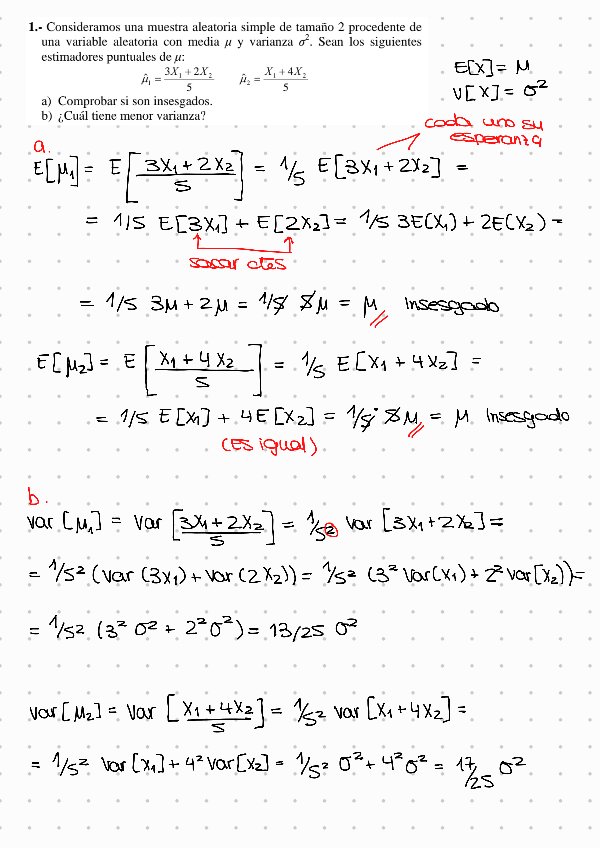 1.- Consideramos una muestra aleatoria simple de tamaño 2 procedente de
una variable aleatoria con media μ y varianza σ². Sean los siguientes
estimadores puntuales de μ:
μ̂₁ = (3X₁ + 2X₂)/5   μ̂₂ = (X₁ + 4X₂)/5
a) Comprobar si son insesgados.
b) ¿Cuál tiene menor varianza?
E[X] = μ
V[X] = σ²
cada uno su
esperanza
a.
E[μ₁] = E[(3X₁ + 2X₂)/5] = 1/5 E[3X₁ + 2X₂] =
= 1/5 E[3X₁] + E[2X₂] = 1/5 3E(X₁) + 2E(X₂) =
sacar ctes
= 1/5 3μ + 2μ = 1/5 5μ = μ Insesgado
E[μ₂] = E[(X₁ + 4X₂)/5] = 1/5 E[X₁ + 4X₂] =
= 1/5 E[X₁] + 4E[X₂] = 1/5 · 5μ = μ Insesgado
(Es igual)
b.
Var[μ₁] = Var[(3X₁ + 2X₂)/5] = 1/5² Var[3X₁ + 2X₂] =
= 1/5² (Var(3X₁) + Var(2X₂)) = 1/5² (3² Var(X₁) + 2² Var[X₂)) =
= 1/5² (3² σ² + 2² σ²) = 13/25 σ²
Var[μ₂] = Var[(X₁ + 4X₂)/5] = 1/5² Var[X₁ + 4X₂] =
= 1/5² Var[X₁] + 4² Var[X₂] = 1/5² σ² + 4² σ² = 17/25 σ²